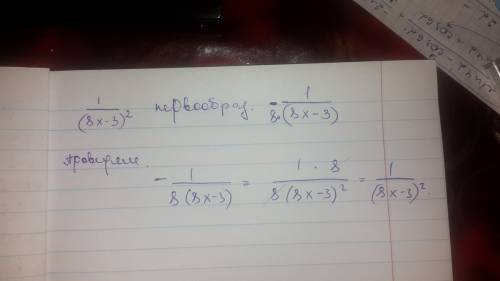 1/(8x-3)² первообраз. - 1/8·(8x-3)
проверяем.
- 1/8(8x-3) = 1·8/8(8x-3)² = 1/(8x-3)².